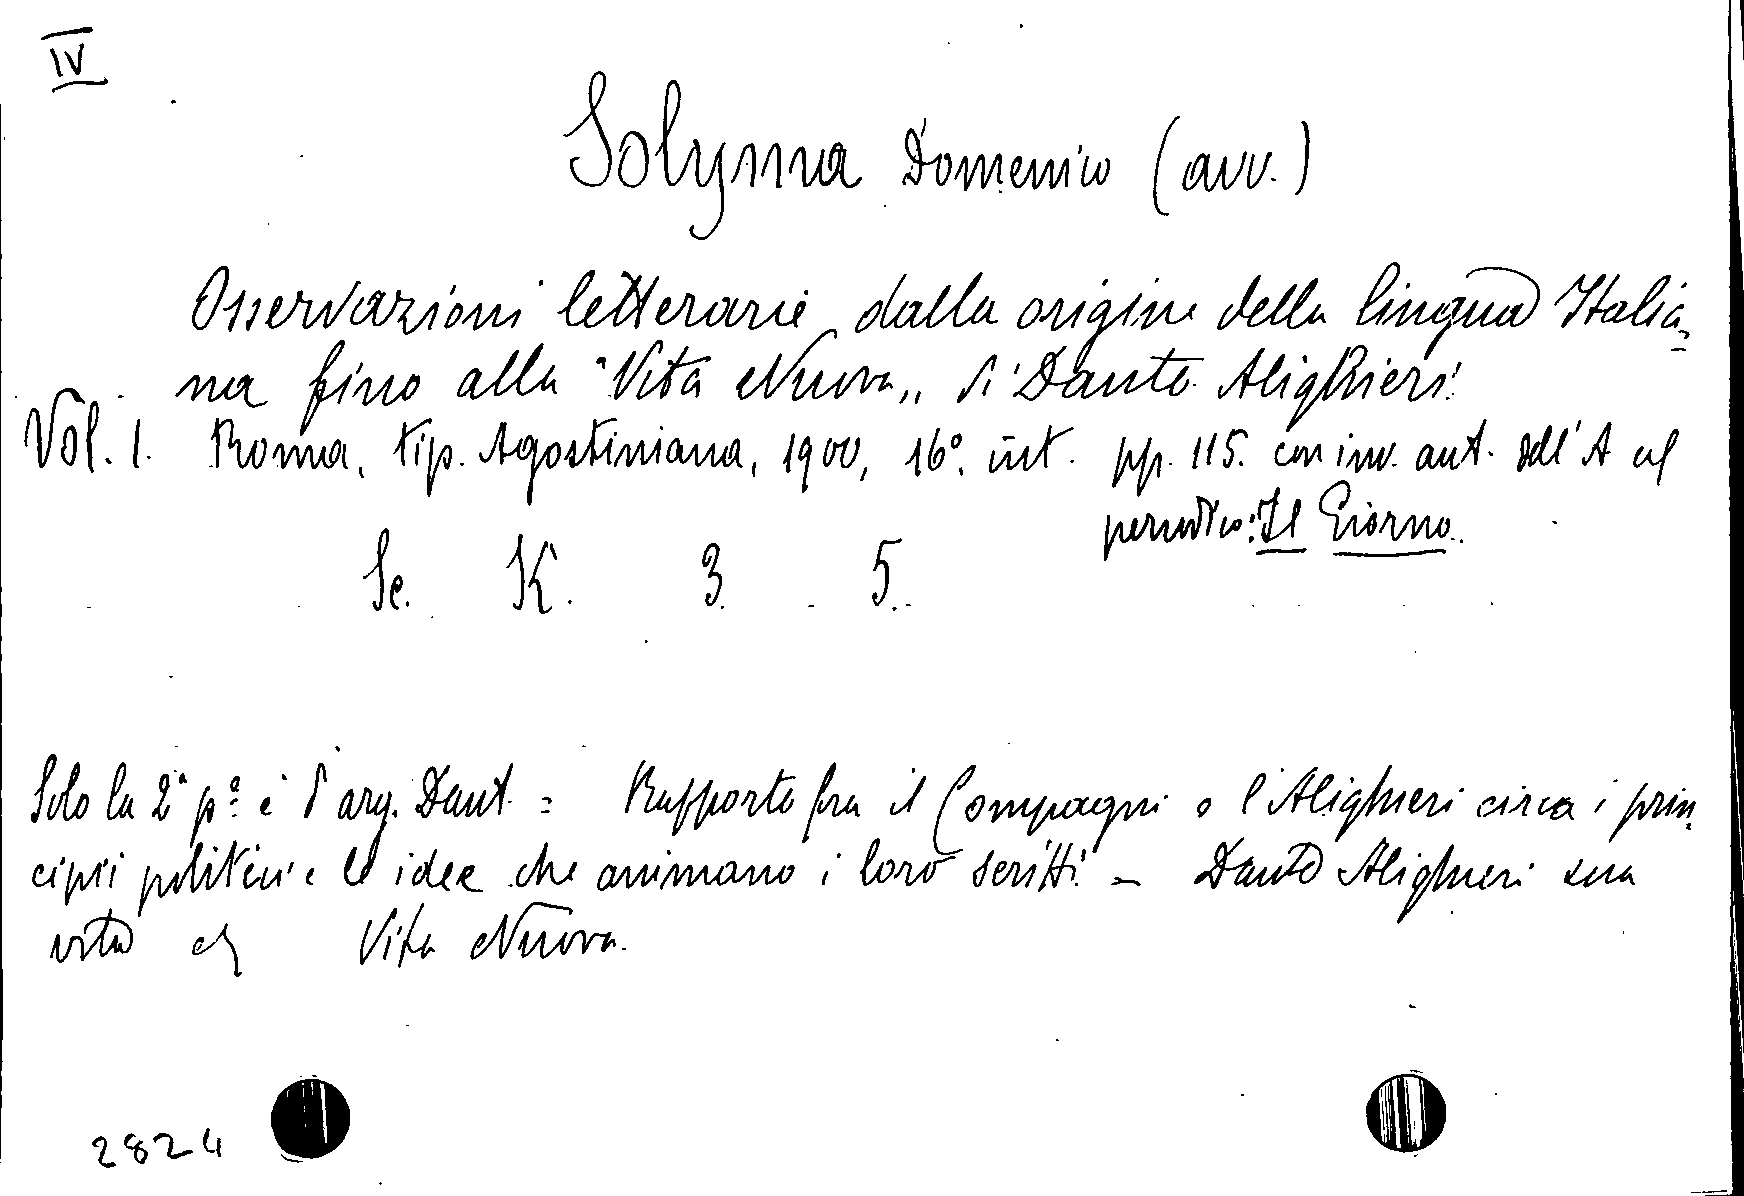 IV
Solyma Domenico (avv.)
Osservazioni letterarie dalla origine della lingua Italia-
na fino alla "Vita Nuova„ di Dante Alighieri
Vol. 1. Roma, tip. Agostiniana, 1900, 16°. int. pp. 115. con inv. aut. dell'A al
periodico: Il Giorno.
Se. K. 3. 5.
Solo la 2ª pe è d'arg. Dant. = Rapporto fra il Compagni e l'Alighieri circa i prin-
cipii politici e le idee che animano i loro scritti = Dante Alighieri sua
vita e Vita Nuova.
2824